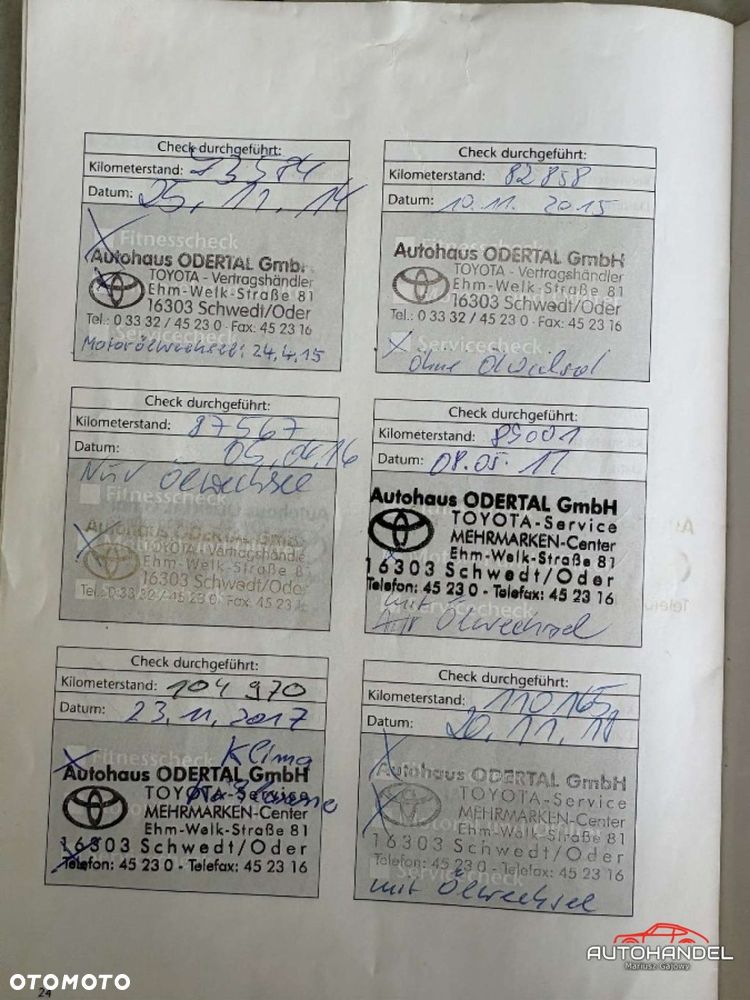 Check durchgeführt:
Kilometerstand: 73584
Datum: 25.11.14
Fitnesscheck
Autohaus ODERTAL GmbH
TOYOTA - Vertragshändler
Ehm-Welk-Straße 81
16303 Schwedt/Oder
Tel.: 0 33 32 / 45 23 0 · Fax: 45 23 16
Servicecheck
Motorölwechsel: 24.4.15
Check durchgeführt:
Kilometerstand: 82858
Datum: 10.11. 2015
Fitnesscheck
Autohaus ODERTAL GmbH
TOYOTA - Vertragshändler
Ehm-Welk-Straße 81
16303 Schwedt/Oder
Tel.: 0 33 32 / 45 23 0 · Fax: 45 23 16
Servicecheck
ohne Ölwechsel
Check durchgeführt:
Kilometerstand: 87567
Datum:
Nur Ölwechsel
Fitnesscheck
Autohaus ODERTAL GmbH
TOYOTA - Vertragshändle
Ehm-Welk-Straße 8
16303 Schwedt/Oder
Tel.: 0 33 32 / 45 23 0 · Fax 45 23
Servicecheck
Check durchgeführt:
Kilometerstand:
Datum:
Autohaus ODERTAL GmbH
TOYOTA-Service
MEHRMARKEN-Center
Ehm-Welk-Straße 81
16303 Schwedt/Oder
Telefon: 45 23 0 - Telefax: 45 23 16
Servicecheck
mit
Ölwechsel
Check durchgeführt:
Kilometerstand: 104 970
Datum: 23.11.2017
Klima
Fitnesscheck
Autohaus ODERTAL GmbH
TOYOTA-Service
MEHRMARKEN-Center
Ehm-Welk-Straße 81
16303 Schwedt/Oder
Telefon: 45 23 0 - Telefax: 45 23 16
Check durchgeführt:
Kilometerstand: 110165
Datum: 20.11.18
Autohaus ODERTAL GmbH
TOYOTA-Service
MEHRMARKEN-Center
Ehm-Welk-Straße 81
16303 Schwedt/Oder
Telefon: 45 23 0 - Telefax: 45 23 16
Servicecheck
mit Ölwechsel
24
OTOMOTO
AUTOHANDEL
Mariusz Gajowy